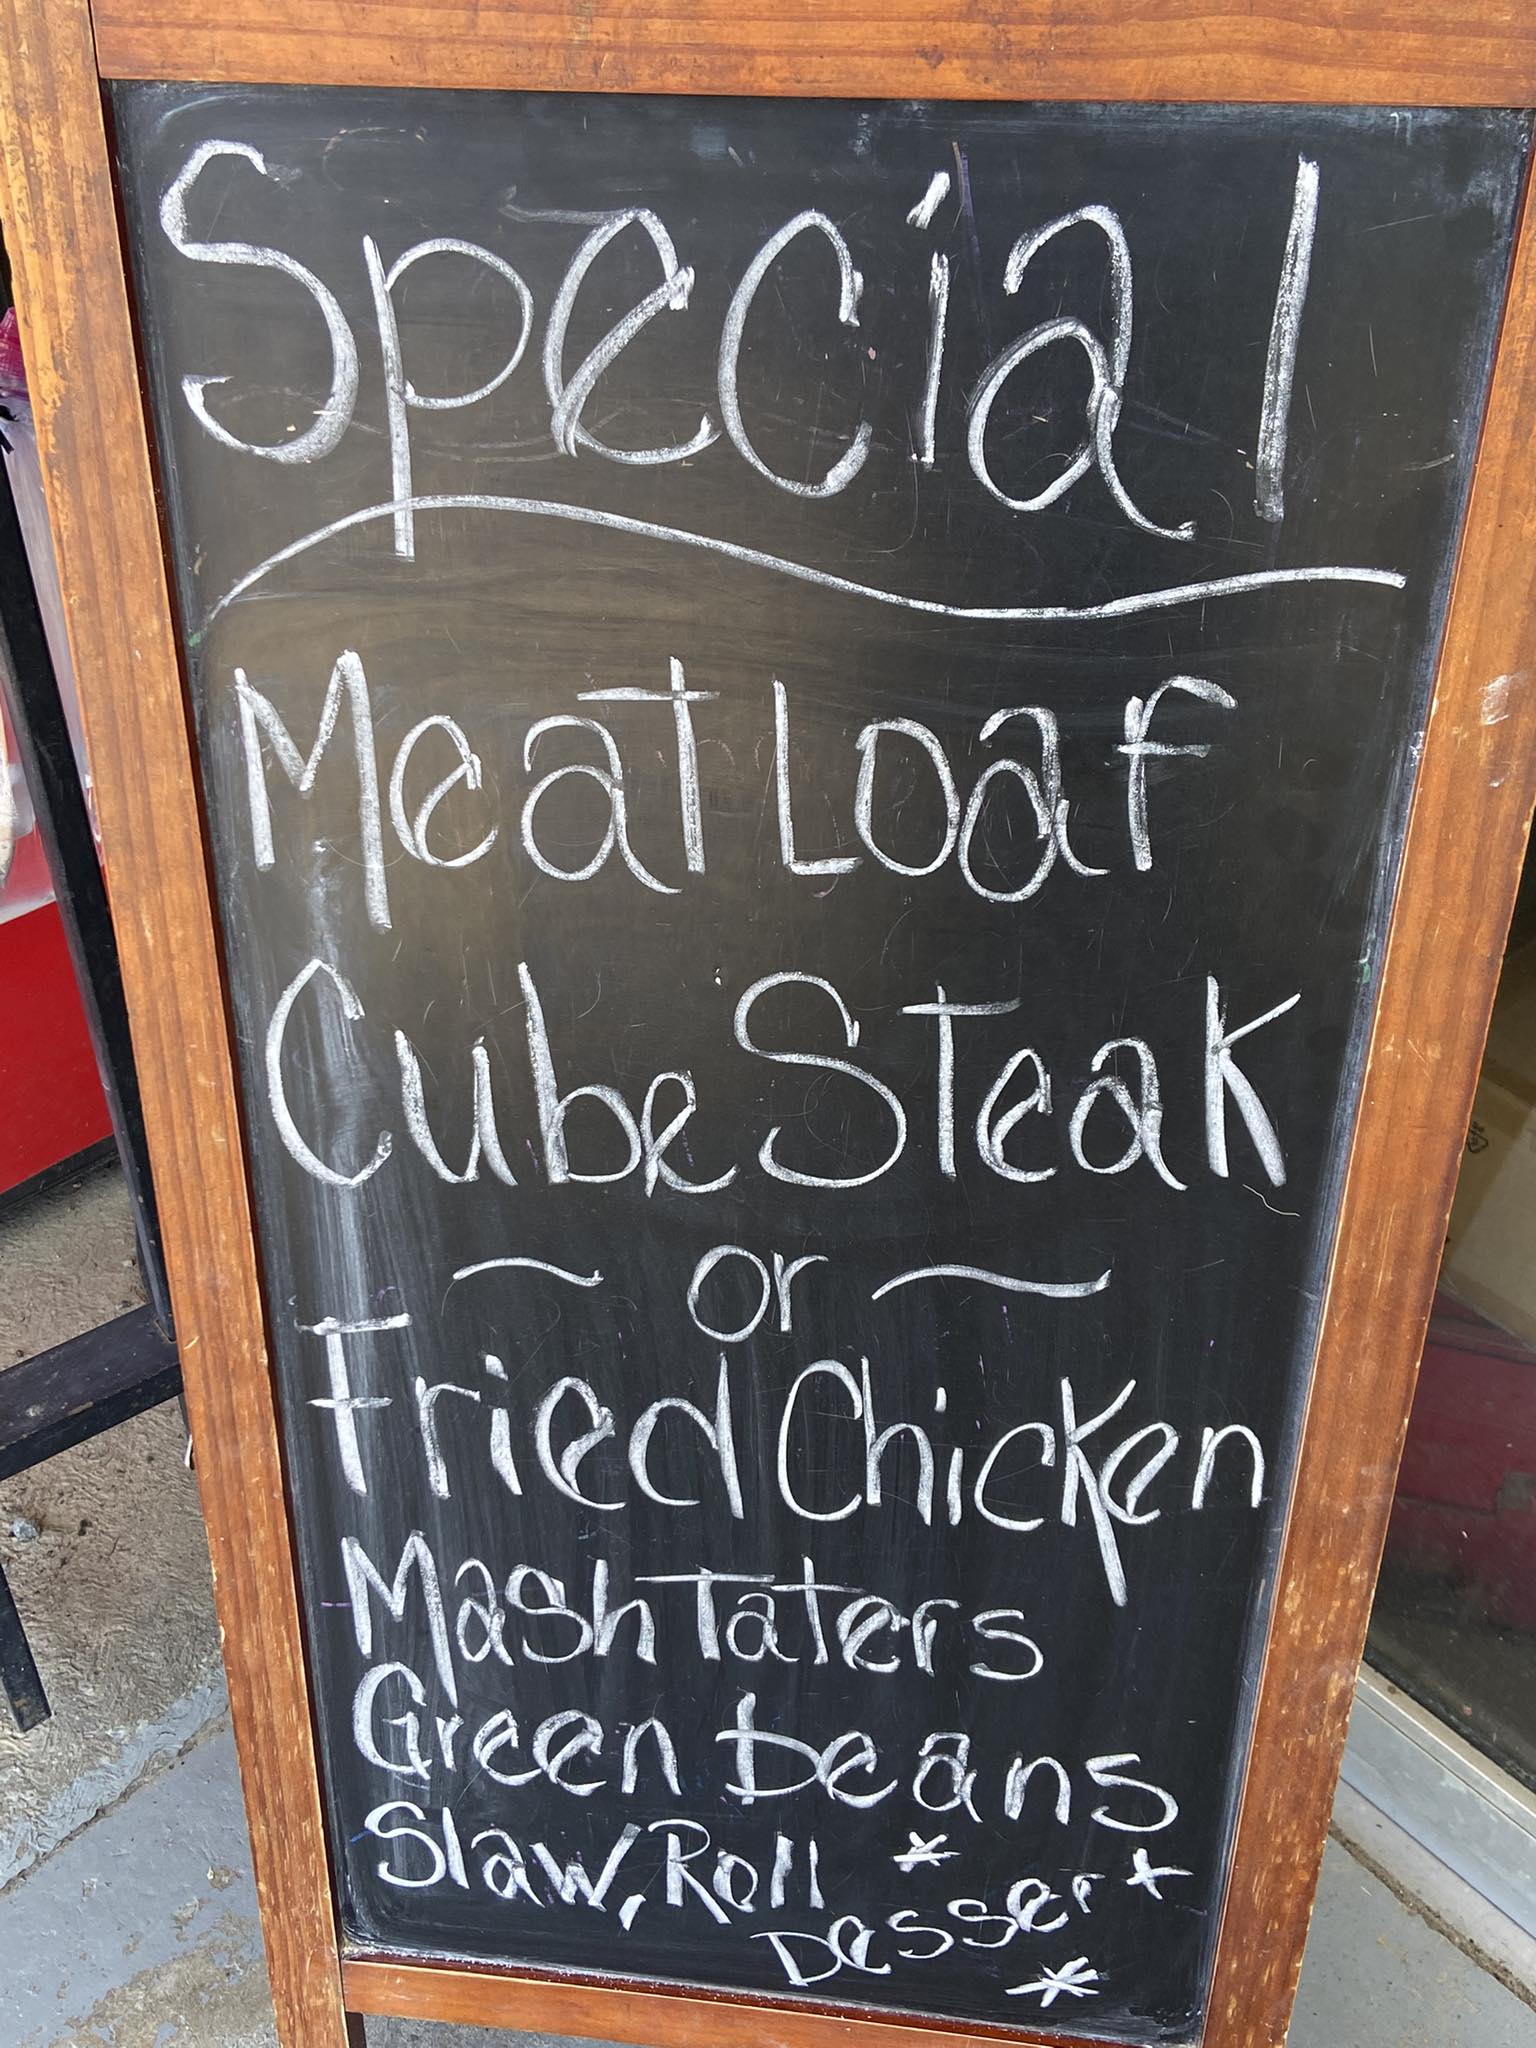 Special
Meat Loaf
Cube Steak
~ or ~
Fried Chicken
Mash Taters
Green Beans
Slaw, Roll *
Dessert
*